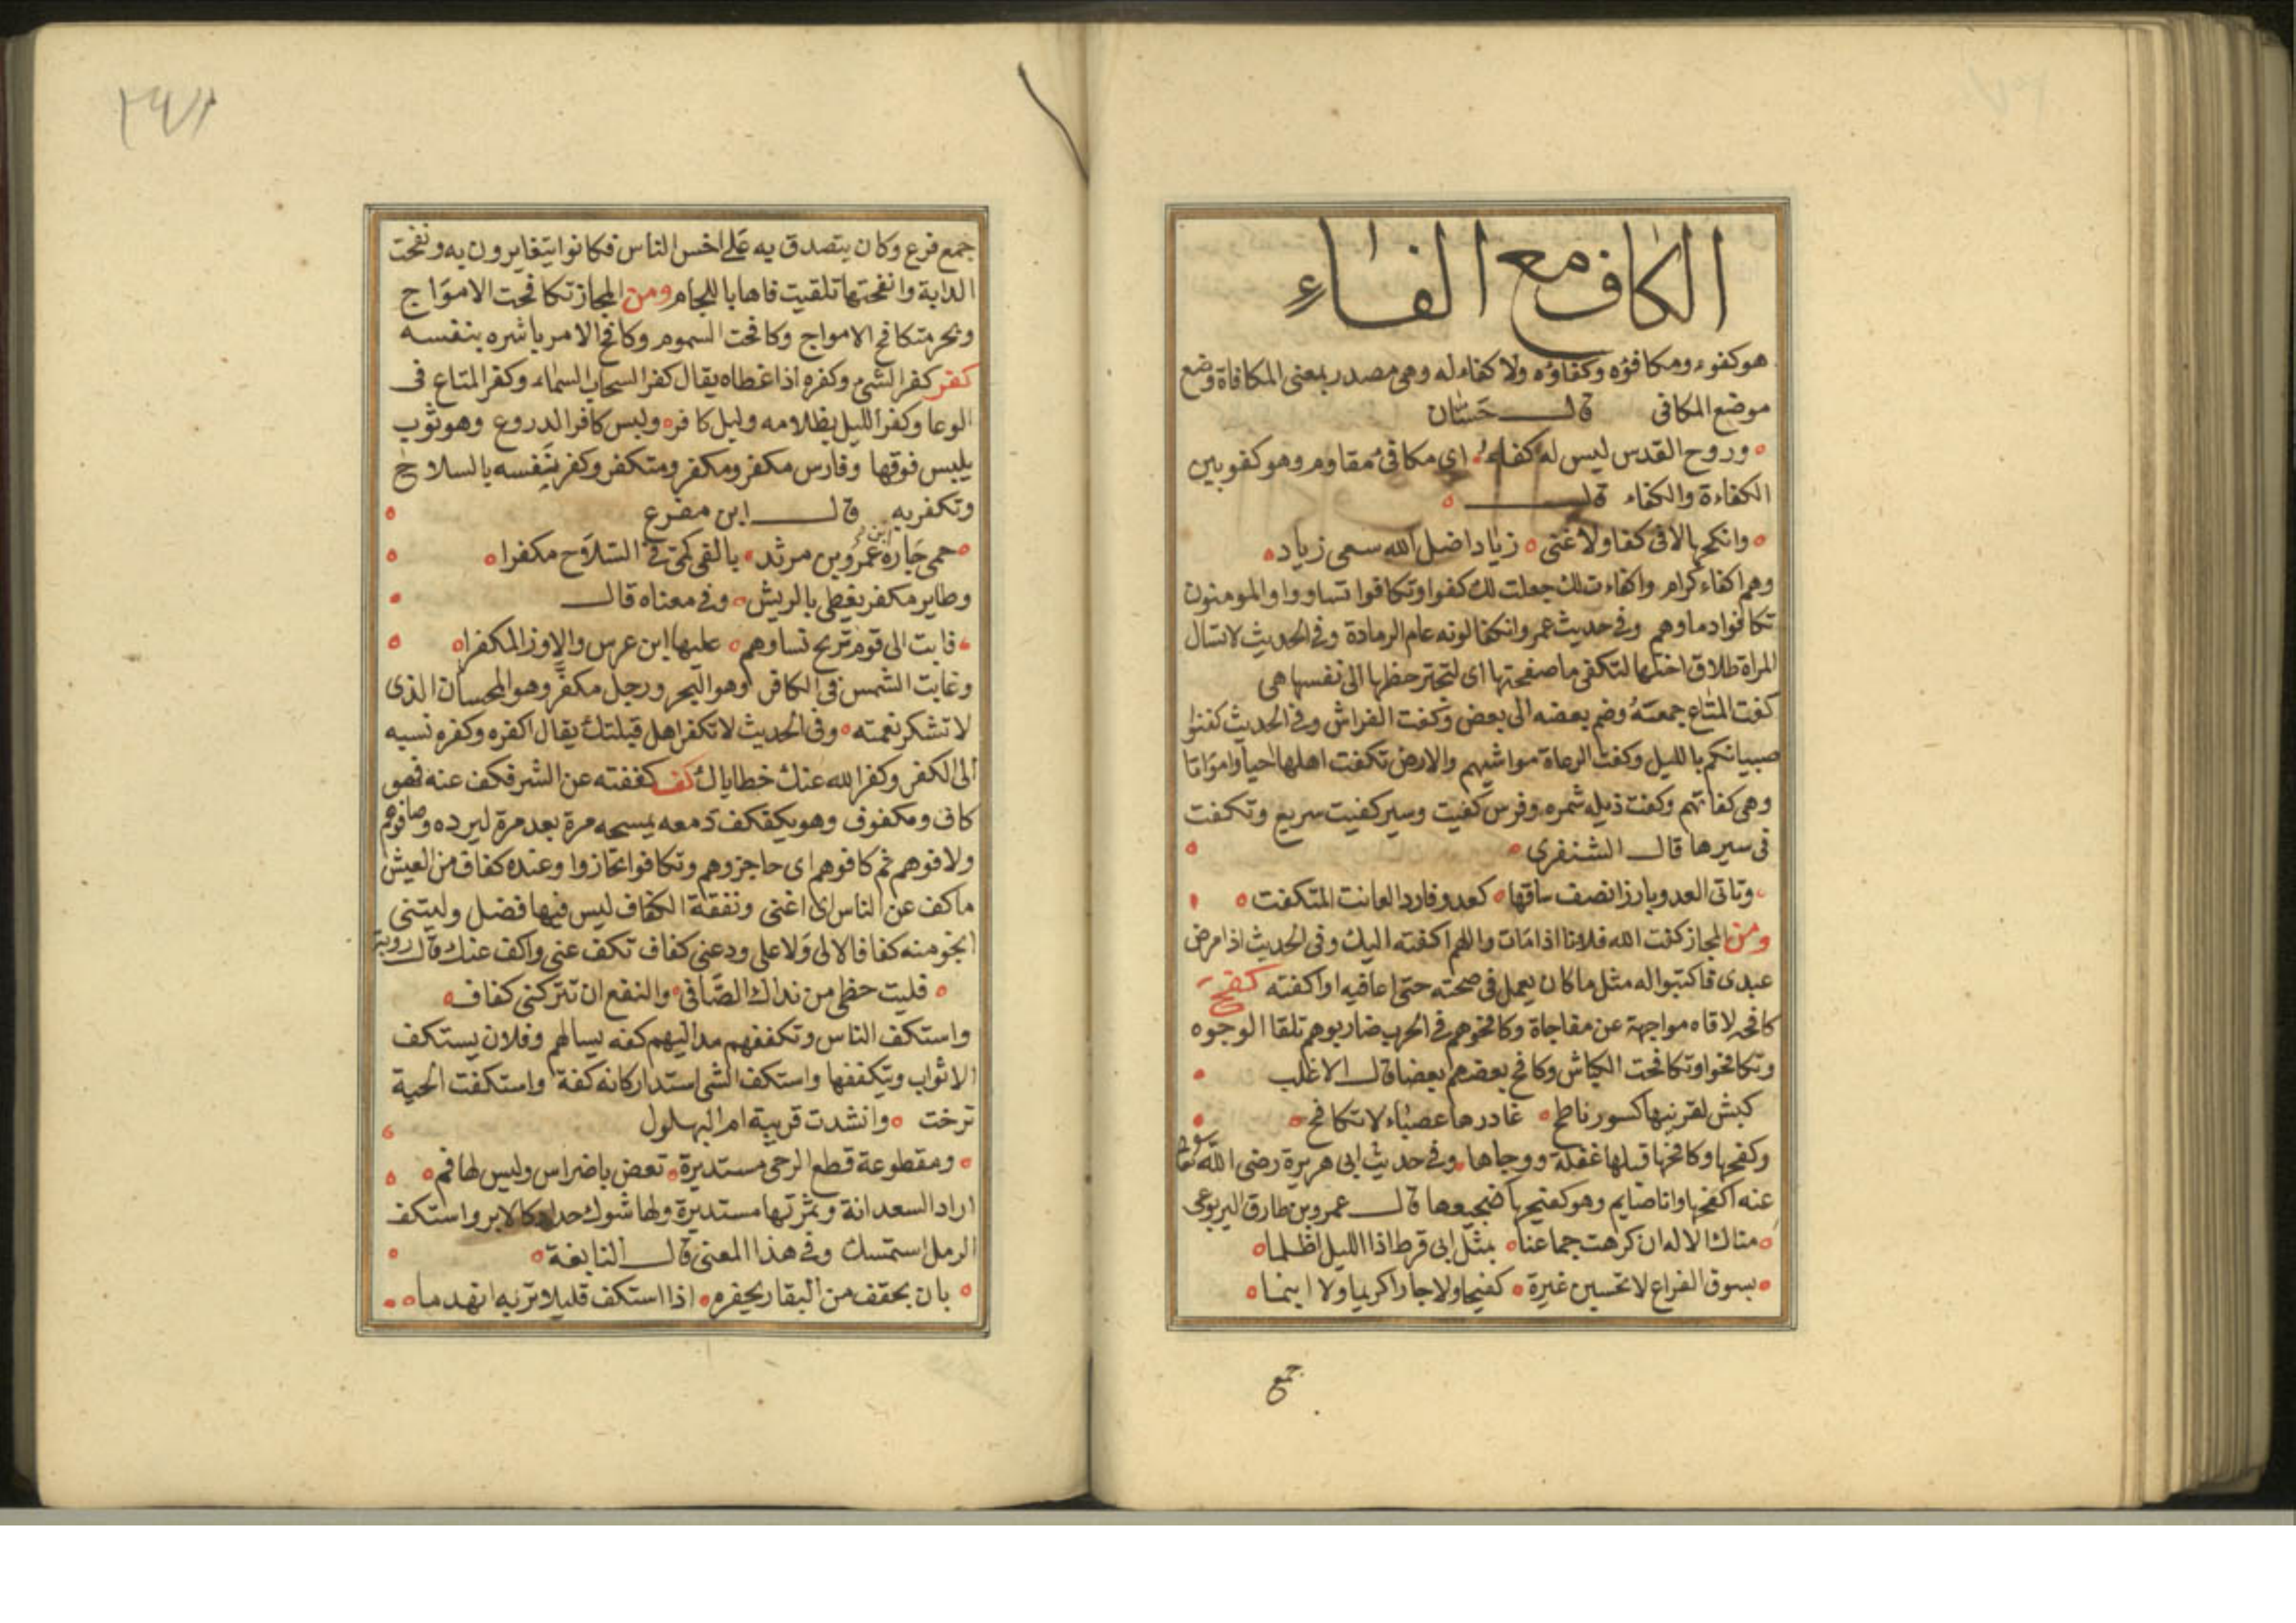 الكاف مع الفاء
هو كفوء ومكافؤه وكفاؤه ولا كفاء له وهى مصدر بمعنى المكافاة وضع
موضع المكافى قال حسان
وروح القدس ليس له كفاء اى مكافئ مقاوم وهو كفو بين
الكفاءة والكفاء قال
وانكحها لا فى كفا ولا غنى زياد اضل الله سعى زياد
وهم اكفاء كرام واكفاءت لك جعلت لك كفوا وتكافوا تساووا والمومنون
تكافوا دماوهم وفى حديث عمر وانكفا لونه عام الرمادة وفى الحديث لا تسال
المراة طلاق اختها لتكفى ما صفحتها اى لتجتر حظها الى نفسها هى
كفت المتاع جمعته وضم بعضه الى بعض وكفت الفراش وفى الحديث كفتوا
صبيانكم بالليل وكفت الرعاة مواشيهم والارض تكفت اهلها احيا وامواتا
وهى كفاتهم وكفت ذيله شمره وفرس كفيت وسير كفيت سريع وتكفت
فى سيرها قال الشنفرى
وتاتى العدو بارزا نصف ساقها كعدو فارد العانت المتكفت
ومن المجاز كفت الله فلانا اذا مات واللهم اكفته اليك وفى الحديث اذا مرض
عبدى فاكتبوا له مثل ما كان يعمل فى صحته حتى اعافيه او اكفته كفح
كافحه لاقاه مواجهة عن مفاجاة وكافحوهم فى الحرب ضاربوهم تلقا الوجوه
وتكافحوا وتكافحت الكباش وكافح بعضهم بعضا قال الاغلب
كبش لقرنيها كسور ناطح غادرها عضباء لا تكافح
وكفحها وكافحها قبلها غفلة ووجاها وفى حديث ابى هريرة رضى الله تعالى
عنه اكفحها وانا صايم وهو كفيحها ضجيعها قال عمرو بن طارق اليربوعى
مناك الاله ان كرهت جماعنا بمثل ابى قرط اذا الليل اظلما
بسوق الفراع لا تحسين غيرة كفيحا ولا جارا كريما ولا ابنما
جمع
جمع فرع وكان يتصدق به على اخس الناس فكانوا يتغايرون به ونفحت
الدابة وانفحتها تلقيت فاها باللجام ومن المجاز تكافحت الامواج
وبحر متكافح الامواج وكافحت السموم وكافح الامر باشره بنفسه
كفر كفر الشئ وكفره اذا غطاه يقال كفر السحاب السماء وكفر المتاع فى
الوعا وكفر الليل بظلامه وليل كافر ولبس كافر الدروع وهو ثوب
يلبس فوقها وفارس مكفر ومكفر ومتكفر وكفر بنفسه بالسلاح
وتكفر به قال ابن مفرغ
حمى جاره عمرو بن مرثد بالفى كمى فى السلاح مكفرا
ابن
وطاير مكفر يغطى بالريش وفى معناه قال
فابت الى قوم تريح نساوهم عليها ابن عرس والاوز المكفرا
وغابت الشمس فى الكافر وهو البحر ورجل مكفر وهو المحسان الذى
لا تشكر نعمته وفى الحديث لا تكفر اهل قبلتك يقال اكفره وكفره نسبه
الى الكفر وكفر الله عنك خطاياك كف كففته عن الشر فكف عنه فهو
كاف ومكفوف وهو يكفكف دمعه يمسحه مرة بعد مرة ليرده وصافوهم
ولافوهم ثم كافوهم اى حاجزوهم وتكافوا تحاجزوا وعنده كفاف من العيش
ما كف عن الناس اى اغنى ونفقة الكفاف ليس فيها فضل وليتنى
انجو منه كفافا لا لى ولا على ودعنى كفاف تكف عنى واكف عنك قال روبة
فليت حظى من نداك الضافى والنفع ان تتركنى كفاف
واستكف الناس وتكففهم مد اليهم كفه يسالهم وفلان يستكف
الابواب ويتكففها واستكف الشى استدار كانه كفة واستكفت الحية
ترحت وانشدت قريبة ام البهلول
ومقطوعة قطع الرحى مستديرة تعض باضراس وليس لها فم
اراد السعدانة وثمرتها مستديرة ولها شوك حداد كالابر واستكف
الرمل استمسك وفى هذا المعنى قال النابغة
بان بحقف من البقار يحفره اذا استكف قليلا تربه انهدما